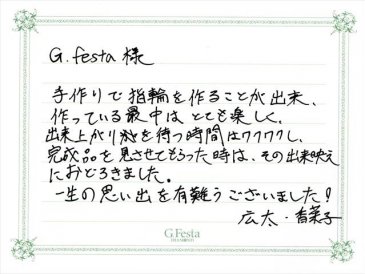 G.festa 様
手作りで指輪を作ることが出来、
作っている最中は とても楽しく、
出来上がりを待つ時間はワクワクし、
完成品を見させてもらった時は、その出来映え
におどろきました。
一生の思い出を有難うございました!
広太・香菜子
G.Festa